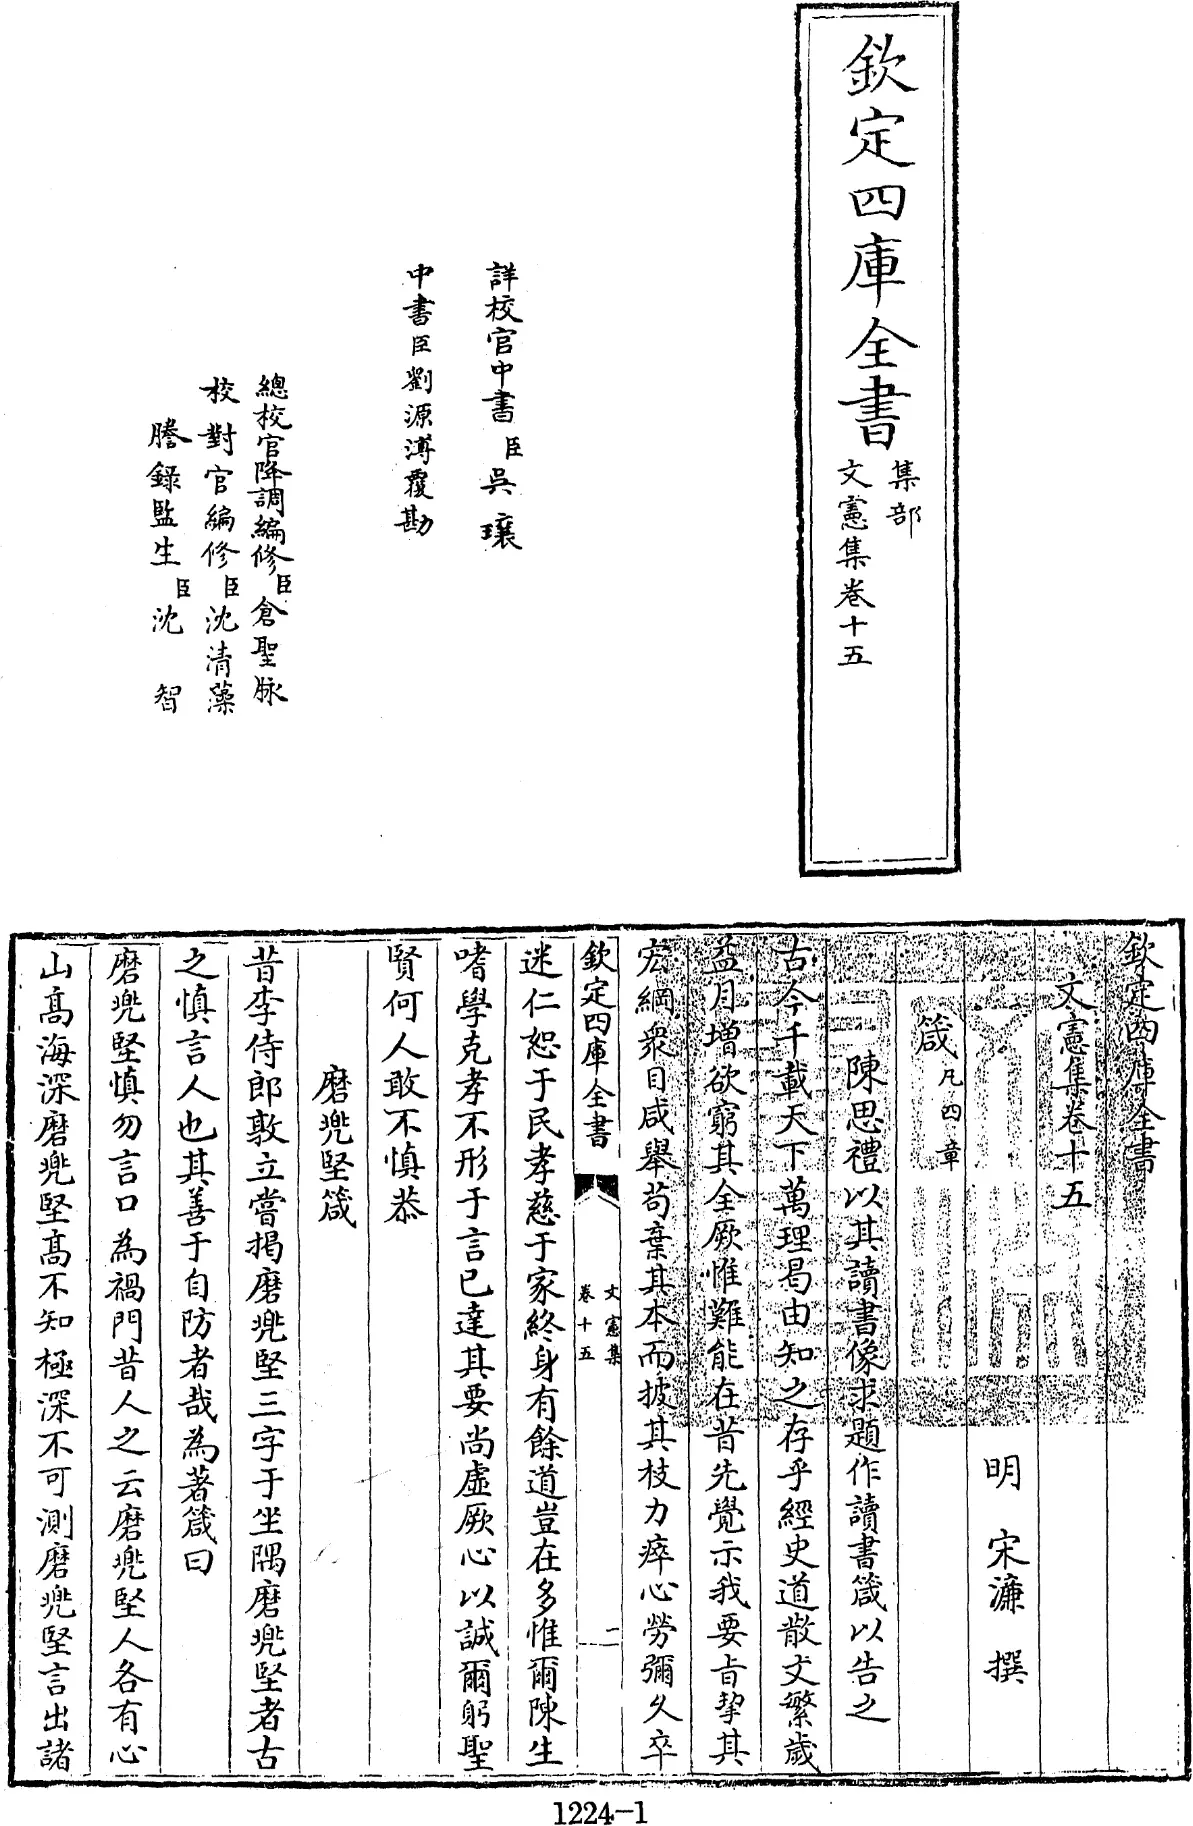 欽定四庫全書
集部
文憲集卷十五
詳校官中書臣吳璥
中書臣劉源溥覆勘
總校官降調編修臣倉聖脉
校對官編修臣沈清藻
謄錄監生臣沈智
欽定四庫全書
文憲集卷十五
明 宋濂 撰
箴凡四章
陳思禮以其讀書像求題作讀書箴以告之
古今千載天下萬理曷由知之存乎經史道散文繁歲
益月增欲窮其全厥惟難能在昔先覺示我要旨挈其
宏綱衆目咸舉苟棄其本而披其枝力瘁心勞彌久卒
欽定四庫全書
文憲集
卷十五
二
迷仁恕于民孝慈于家終身有餘道豈在多惟爾陳生
嗜學克孝不形于言已達其要尚虛厥心以誠爾躬聖
賢何人敢不慎恭
磨兠堅箴
昔李侍郎敦立嘗揭磨兠堅三字于坐隅磨兠堅者古
之慎言人也其善于自防者哉為著箴曰
磨兠堅慎勿言口為禍門昔人之云磨兠堅人各有心
山髙海深磨兠堅髙不知極深不可測磨兠堅言出諸
1224-1